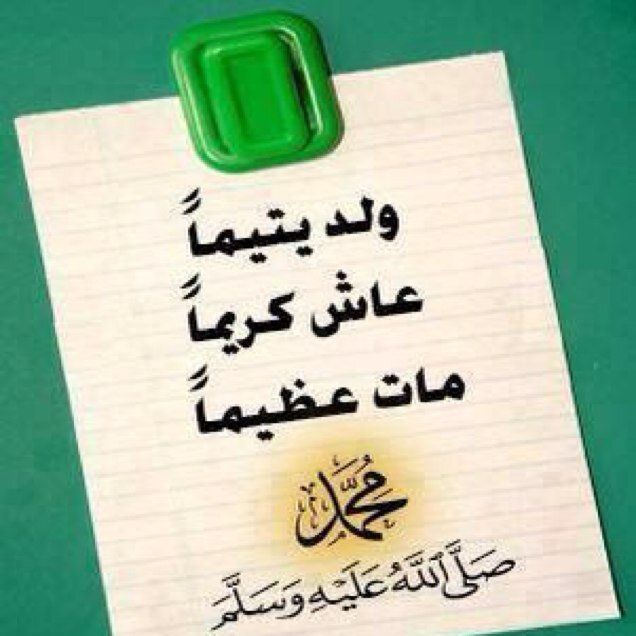 ولد يتيماً
عاش كريماً
مات عظيماً
محمد
صَلَّى اللَّهُ عَلَيْهِ وَسَلَّمَ